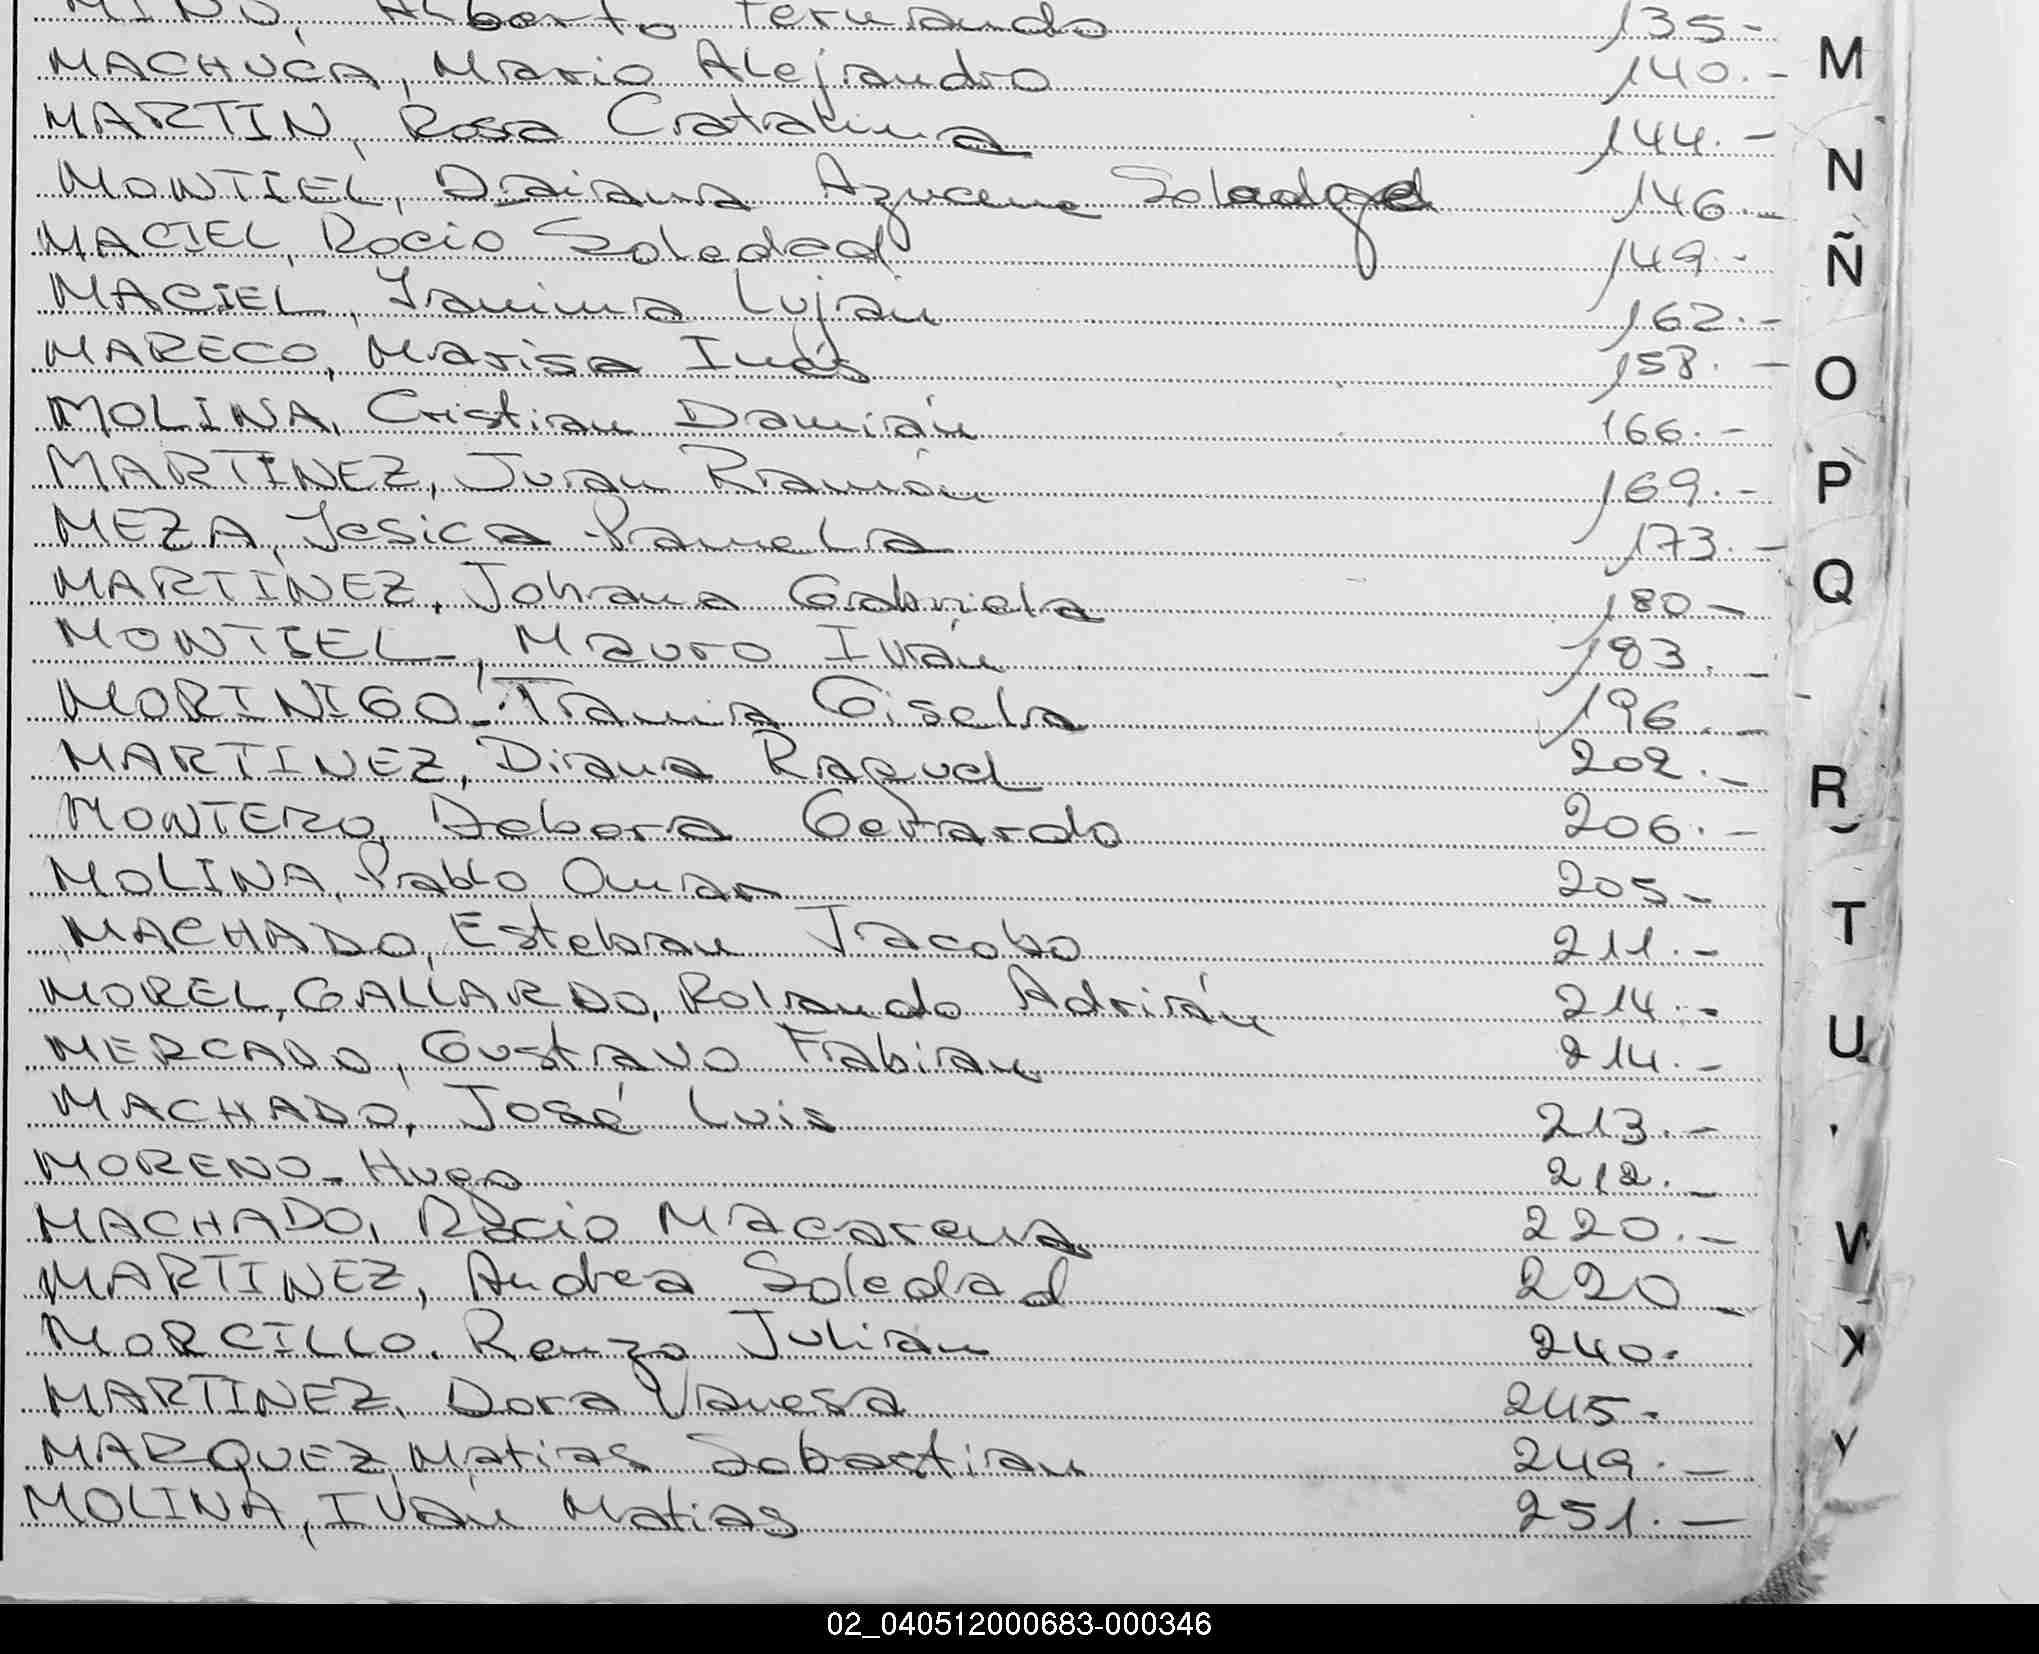 MIÑO, Alberto Fernando 135-
MACHUCA, Mario Alejandro 140.-
MARTIN, Rosa Catalina 144.-
MONTIEL, Daiana Azucena Soledad 146.-
MACIEL, Rocio Soledad 149.-
MACIEL, Yanina Luján 162.-
MARECO, Marisa Inés 158.-
MOLINA, Cristian Damián 166.-
MARTINEZ, Juan Ramón 169.-
MEZA, Jesica Pamela 173.-
MARTÍNEZ, Johana Gabriela 180-
MONTIEL-, Mauro Iván 183.-
MORINIGO-Tania Gisela 196.-
MARTINEZ, Diana Raquel 202.-
MONTERO, Debora Gerardo 206.-
MOLINA, Pablo Omar 205-
MACHADO, Esteban Jacobo 211.-
MOREL, GALLARDO, Rolando Adrián 214.-
MERCADO, Gustavo Fabian 214.-
MACHADO, José Luis 213.-
MORENO-Hugo 212.-
MACHADO, Rocio Macarena 220.-
MARTINEZ, Andrea Soledad 220-
MORCILLO, Renzo Julian 240.
MARTINEZ, Dora Vanesa 245-
MARQUEZ, Matias Sebastian 249.-
MOLINA, Iván Matias 251.-
M
N
Ñ
O
P
Q
R
T
U
W
X
Y
02_040512000683-000346